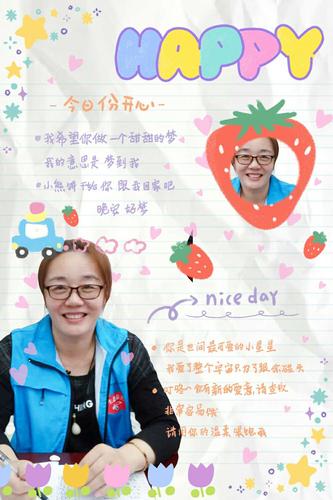 HAPPY
- 今日份开心 -
我希望你做一个甜甜的梦
我的意思是 梦到我
小熊饼干给你 跟我回家吧
晚安 好梦
nice day
你是世间最可爱的小星星
我要了整个宇宙 只为了跟你碰头
叮咚~你有新的爱意 请查收
非常容易
请用你的温柔